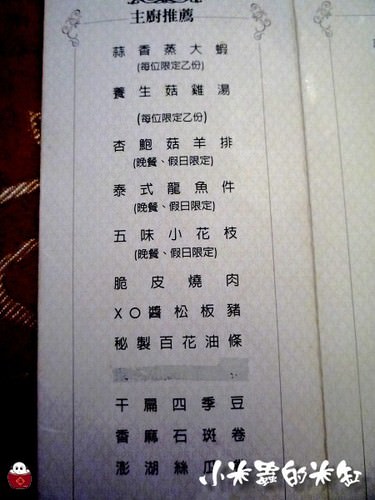 主廚推薦
蒜香蒸大蝦
(每位限定乙份)
養生菇雞湯
(每位限定乙份)
杏鮑菇羊排
(晚餐、假日限定)
泰式龍魚件
(晚餐、假日限定)
五味小花枝
(晚餐、假日限定)
脆皮燒肉
XO醬松板豬
秘製百花油條
干扁四季豆
香麻石斑卷
澎湖絲瓜
小米蟲的米缸